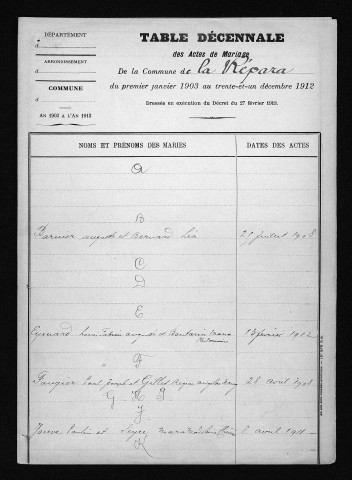 DÉPARTEMENT
d
ARRONDISSEMENT
d
COMMUNE
d
AN 1903 A L'AN 1913
TABLE DÉCENNALE
des Actes de Mariage
De la Commune de La Répara
du premier janvier 1903 au trente-et-un décembre 1912
Dressée en exécution du Décret du 27 février 1913.
NOMS ET PRÉNOMS DES MARIÉS DATES DES ACTES
A
B
Barnier auguste et Bernard Léa 25 juillet 1908
C
D
E
Eymard Louis auguste et Maria 13 février 1912
F
Faugier Paul Joseph et Gillet 28 avril 1908
G H I
J
et 8 avril 1911
K